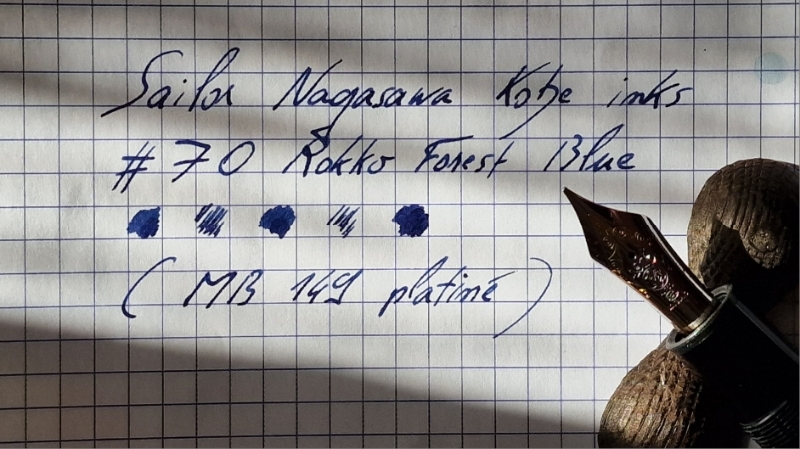 Sailor Nagasawa Kobe inks
# 70 Rokko Forest Blue
( MB 149 platiné )